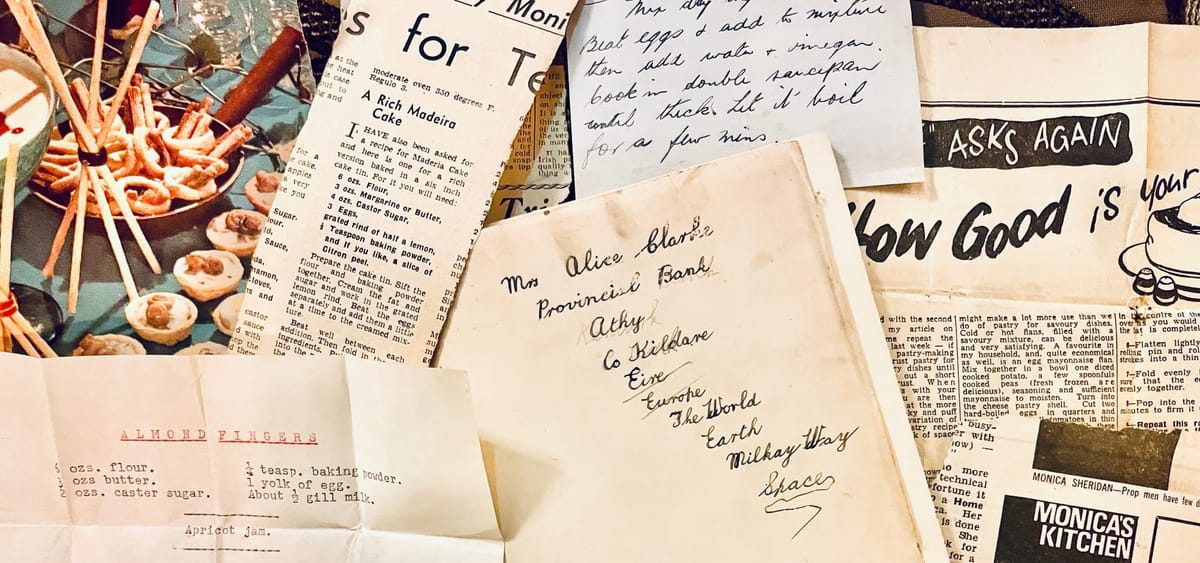 y Moni
s for Te
at the
heat
is case
out to
ng and
moderate oven 350 degrees F.
Regulo 3.
A Rich Madeira
Cake
I HAVE also been asked for
a recipe for Maderia Cake
and here is one for a rich
version baked in a six inch
cake tin. For it you will need:
6 ozs. Flour,
3 ozs. Margarine or Butter,
4 ozs. Castor Sugar,
3 Eggs,
grated rind of half a lemon,
¼ Teaspoon baking powder,
and if you like, a slice of
Citron peel.
Prepare the cake tin. Sift the
flour and baking powder
together. Cream the fat and
sugar and work in the grated
lemon rind. Beat the eggs
separately and add them a little
at a time to the creamed mix-
Beat well between each
addition. Then fold in
ingredients.
into the
for a
cake.
apples
very
ke you
Sugar.
our.
Sauce,
castor
sauce
with
the
Tri
Mix dry
Beat eggs & add to mixture
then add water + vinegar.
book in double saucepan
until thick. Let it boil
for a few mins
Mrs Alice Clarke
Provincial Bank
Athy
Co Kildare
Eire
Europe
The World
Earth
Milkay Way
Space
ALMOND FINGERS
ozs. flour.
ozs butter.
ozs. caster sugar.
¼ teasp. baking powder.
1 yolk of egg.
About ½ gill milk.
Apricot jam.
ASKS AGAIN
How Good is your
d with the second
my article on
me repeat the
last week — if
pastry-making
rust pastry for
dishes until
out a short
rust. When
with your
you are then
at the more
ky and puff
variation of
try recipe
k of space
might make a lot more use than we
do of pastry for savoury dishes.
Cold or hot flans, filled with a
savoury mixture, can be delicious
and very satisfying. A favourite in
my household, and, quite economical
as well, is an egg mayonnaise flan.
Mix together in a bowl one diced
cooked potato, a few spoonfuls
cooked peas (fresh frozen are
delicious), seasoning and sufficient
mayonnaise to moisten. Turn into
the cheese pastry shell. Cut two
hard-boiled eggs in quarters and
tomatoes in this
centre of the
as you would
the fat is complete
—Flatten lightly
rolling pin and ro
strokes into a thin
—Fold evenly
sure that the e
evenly together.
—Pop into the
minutes to firm it
—Repeat this ro
busy-
er with
ow) —
o more
technical
fortune it
a Home
ca. Her
is done
She
k for
for a
MONICA SHERIDAN—Prop men have few d
MONICA'S
KITCHEN